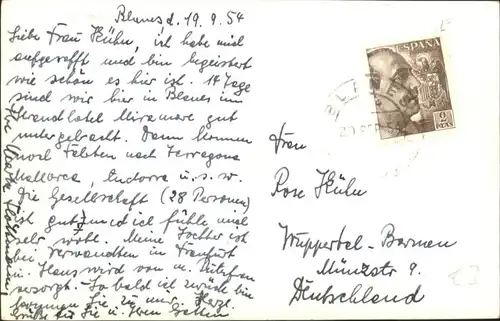 Blanes d. 19.9.54
Liebe Frau Kühn, ich habe mich
aufgerafft und bin begeistert
wie schön es hier ist. 14 Tage
sind wir hier in Blanes im
Strandhotel Miramare gut
untergebracht. Dann kommen
noch Fahrten nach Terragona
Mallorca, Andorra u.s.w.
Die Gesellschaft (28 Personen)
ist gut und ich fühle mich
sehr wohl. Meine Tochter ist
bei Verwandten in Frankfurt
u. Haus wird von
versorgt. So bald ich zurück bin
kommen Sie zu mir. Herzl.
Grüße für Sie u. Ihren Gatten
Ihre Marta
ESPAÑA
2
PTAS
20 SEP
Frau
Rose Kühn
Wuppertal-Barmen
Münzstr 9.
Deutschland